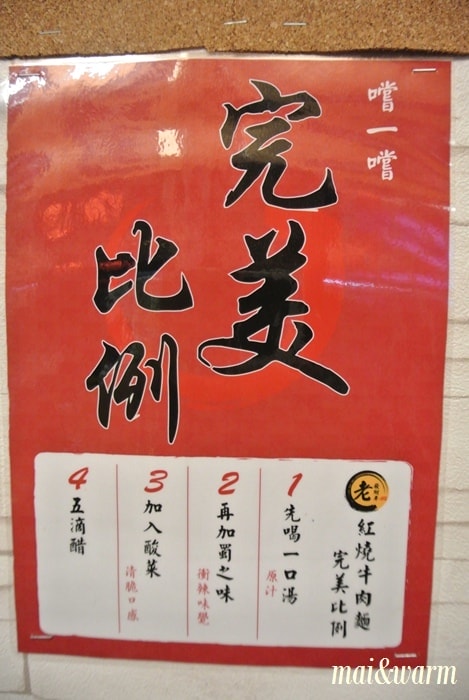 嚐一嚐
完美
比例
老
紅燒牛肉麵
完美比例
1
先喝一口湯
原汁
2
再加蜀之味
衝辣味覺
3
加入酸菜
清脆口感
4
五滴醋
mai&warm